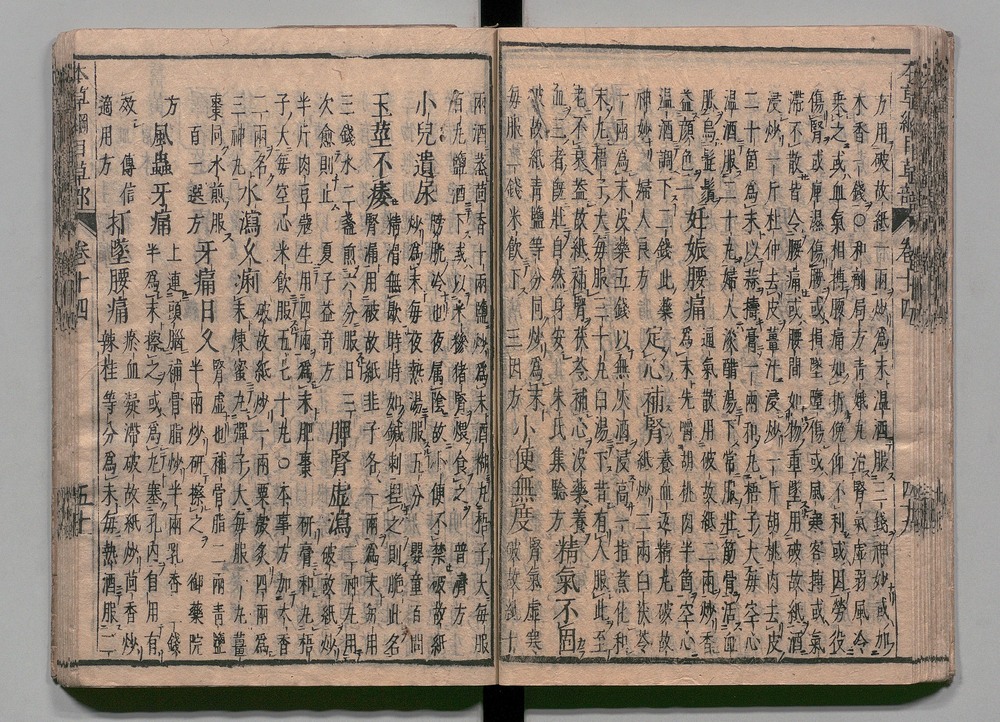 本草綱目草部 卷十四 四十九
方用破故紙一兩炒爲末溫酒服三錢神妙或加
木香一錢○和劑局方青娥丸治腎氣虛弱風冷
乘之或血氣相搏腰痛如折俛仰不利或因勞役
傷腎或卑濕傷腰或損墜墮傷或風寒客搏或氣
滯不散皆令腰痛或腰間如物重墜用破故紙酒
浸炒一斤杜仲去皮薑汁浸炒一斤胡桃肉去皮
二十箇爲末以蒜擣膏一兩和丸梧子大每空心
溫酒服二十丸婦人淡醋湯下常服壯筋骨活血
脉烏髭鬚
益顏色
妊娠腰痛 通氣散用破故紙二兩炒香
爲末先嚼胡桃肉半箇空心
溫酒調下二錢此藥
神妙 婦人良方
定心補腎 養血返精丸破故
紙炒二兩白茯苓
一兩爲末沒藥五錢以無灰酒浸高一指煮化和
末丸梧子大每服三十丸白湯下昔有人服此至
老不衰蓋故紙補腎茯苓補心沒藥養血
三者既壯自然身安 朱氏集驗方
精氣不固
破故紙青鹽等分同炒爲末
每服二錢米飲下 三因方
小便無度 腎氣虛寒
破故紙十
兩酒蒸茴香十兩鹽炒爲末酒糊丸梧子大每服
百丸鹽酒下或以末糝猪腎煨食之 普濟方
小兒遺尿 膀胱冷也夜屬陰故小便不禁破故紙
炒爲末每夜熱湯服五分 嬰童百問
玉莖不痿 精滑無歇時時如鍼刺捏之則脆此名
腎漏用破故紙韭子各一兩爲末每用
三錢水二盞煎六分服日三
次愈則止 夏子益奇方
脾腎虛瀉 二神丸用
破故紙炒
半斤肉豆蔻生用四兩爲末肥棗 研膏和丸梧
子大每空心米飲服五七十丸○本事方加木香
二兩名
三神丸
水瀉久痢 破故紙炒一兩粟殼炙四兩爲
末煉蜜丸彈子大每服一丸薑
棗同水煎服
百一選方
牙痛日久 腎虛也補骨脂二兩青鹽
半兩炒研擦之 御藥院
方
風蟲牙痛 上連頭腦補骨脂炒半兩乳香二錢
半爲末擦之或爲丸塞孔內自用有
效 傳信
適用方
打墜腰痛 瘀血凝滯破故紙炒茴香炒
辣桂等分爲末每熱酒服二
本草綱目草部 卷十四 五十